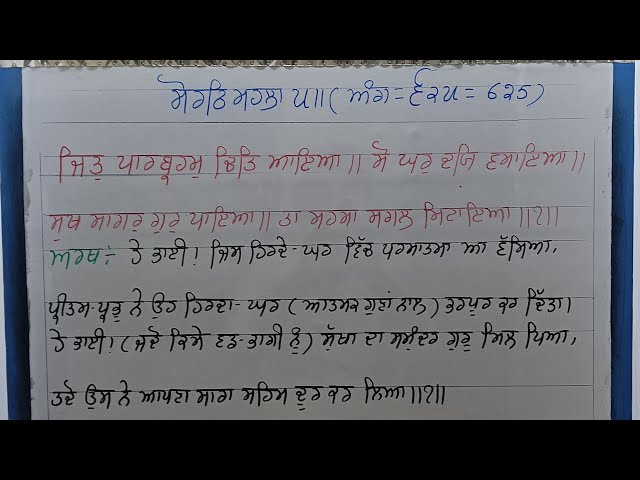 ਸੋਰਠਿ ਮਹਲਾ ੫॥ (ਅੰਗ = ੬੨੫ = 625)
ਜਿਤੁ ਪਾਰਬ੍ਰਹਮੁ ਚਿਤਿ ਆਇਆ॥ ਸੋ ਘਰੁ ਦਯਿ ਵਸਾਇਆ॥
ਸੁਖ ਸਾਗਰੁ ਗੁਰੁ ਪਾਇਆ॥ ਤਾ ਸਹਸਾ ਸਗਲ ਮਿਟਾਇਆ॥੧॥
ਅਰਥ: ਹੇ ਭਾਈ! ਜਿਸ ਹਿਰਦੇ-ਘਰ ਵਿੱਚ ਪਰਮਾਤਮਾ ਆ ਵੱਸਿਆ,
ਪ੍ਰੀਤਮ-ਪ੍ਰਭੂ ਨੇ ਉਹ ਹਿਰਦਾ-ਘਰ (ਆਤਮਕ ਗੁਣਾਂ ਨਾਲ) ਭਰਪੂਰ ਕਰ ਦਿੱਤਾ।
ਹੇ ਭਾਈ! (ਜਦੋਂ ਕਿਸੇ ਵਡ-ਭਾਗੀ ਨੂੰ) ਸੁੱਖਾਂ ਦਾ ਸਮੁੰਦਰ ਗੁਰੂ ਮਿਲ ਪਿਆ,
ਤਦੋਂ ਉਸ ਨੇ ਆਪਣਾ ਸਾਰਾ ਸਹਿਮ ਦੂਰ ਕਰ ਲਿਆ॥੧॥